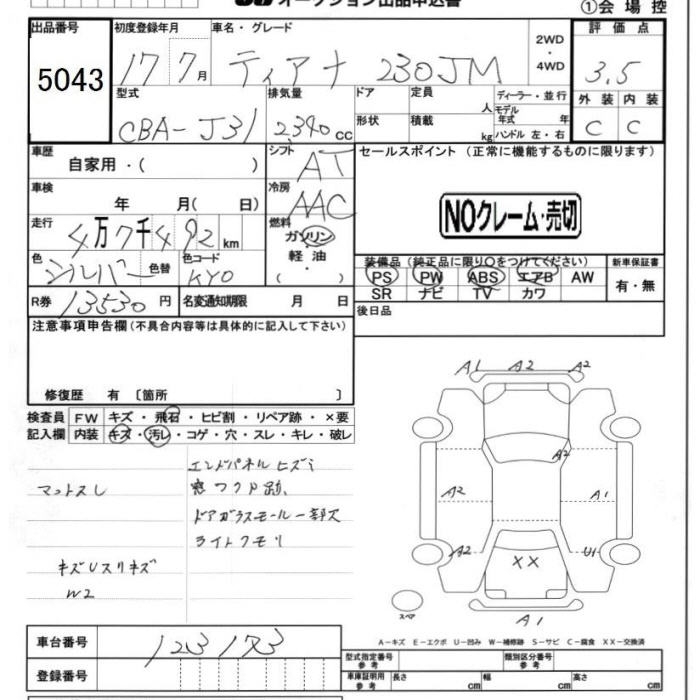 オークション出品申込書
①会場控
出品番号 初度登録年月 車名・グレード 2WD・4WD 評価点
5043 17 7月 ティアナ 230JM 3.5
型式 排気量 ドア 定員 人 ディーラー・並行 外装 内装
CBA-J31 2340 cc 形状 積載 kg モデル年式 年 ハンドル 左・右 C C
車歴 シフト セールスポイント (正常に機能するものに限ります)
自家用・( ) AT
車検 冷房
年 月( 日) AAC
NOクレーム・売切
走行 燃料
4万7千492km ガソリン
軽油
( )
色 色替 色コード
シルバー KY0
装備品(純正品に限り○をつけてください) 新車保証書
PS PW ABS エアB AW 有・無
SR ナビ TV カワ
R券 13530円 名変通知期限 月 日
後日品
注意事項申告欄(不具合内容等は具体的に記入して下さい)
修復歴 有 〔箇所 〕
検査員 FW キズ・飛石・ヒビ割・リペア跡・×要
記入欄 内装 キズ・汚レ・コゲ・穴・スレ・キレ・破レ
エンドパネルヒズミ
マットスレ
ドアガラスモール一部欠
ライトクモリ
W2
A1 A2 A2
A2
A2 A1
A2 U1
XX
スペア
A1
A-キズ E-エクボ U-凹み W-補修跡 S-サビ C-腐食 XX-交換済
車台番号 123173
登録番号
型式指定番号 参考 類別区分番号 参考
車庫証明用 参考 長さ cm 幅 cm 高さ cm